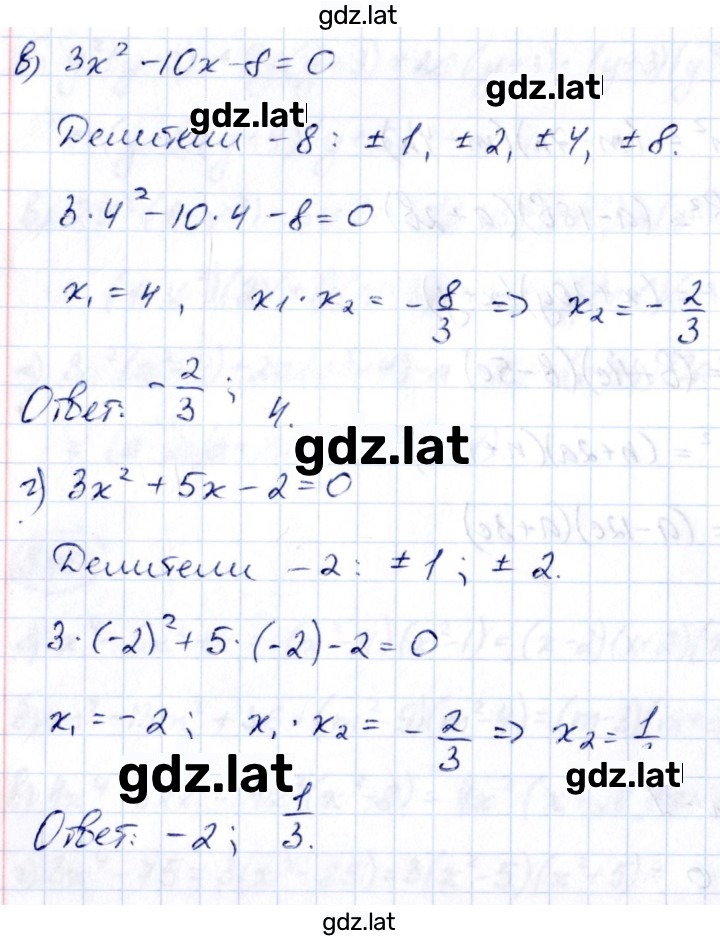 gdz.lat
в) 3x² - 10x - 8 = 0
gdz.lat
gdz.lat
Делители -8: ±1, ±2, ±4, ±8.
3·4² - 10·4 - 8 = 0
x₁ = 4, x₁·x₂ = -8/3 => x₂ = -2/3
Ответ: -2/3; 4.
gdz.lat
г) 3x² + 5x - 2 = 0
Делители -2: ±1; ±2.
3·(-2)² + 5·(-2) - 2 = 0
x₁ = -2; x₁·x₂ = -2/3 => x₂ = 1/
gdz.lat
gdz.lat
Ответ: -2; 1/3.
gdz.lat